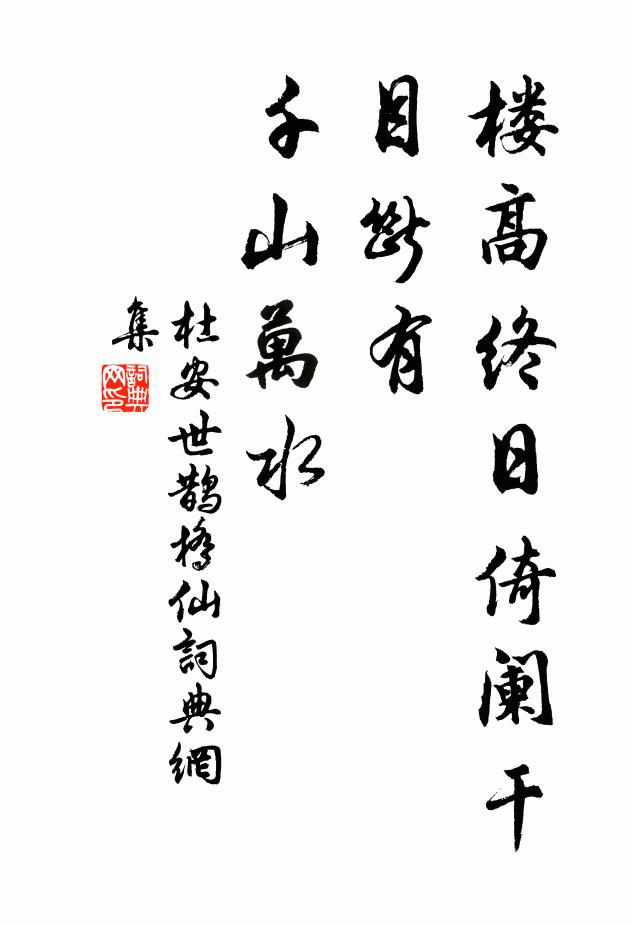 楼高终日倚阑干
目断有
千山萬水
杜安世鹊橋仙詞典網
集
詞典
网印